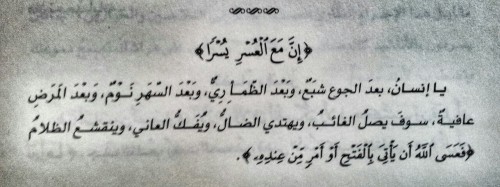 ﴿إِنَّ مَعَ ٱلْعُسْرِ يُسْرًا﴾
يا إنسانُ، بعدَ الجوع شبَعٌ، وبَعْدَ الظَّمَأ رِيٌّ، وبَعْدَ السَّهَرِ نَوْمٌ، وبَعْدَ المَرَضِ
عافيةٌ، سوفَ يصلُ الغائبُ، ويهتدي الضالُّ، ويُفَكُّ العاني، وينقشعُ الظلامُ
﴿فَعَسَى ٱللَّهُ أَن يَأْتِىَ بِٱلْفَتْحِ أَوْ أَمْرٍ مِّنْ عِندِهِۦ﴾.